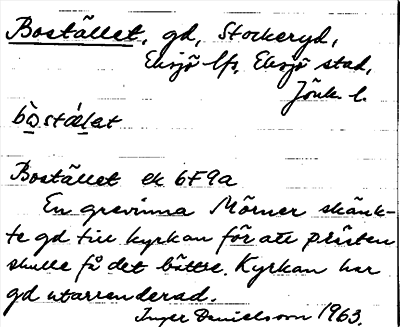 Bostället, gd, Stockeryd,
Eksjö lfs, Eksjö stad,
Jönk l.
bo̱stä̱ḻet
Bostället ek 6F9a
En grevinna Mörner skänk-
te gd till kyrkan för att prästen
skulle få det bättre. Kyrkan har
gd utarrenderad.
Inger Danielsson 1963.